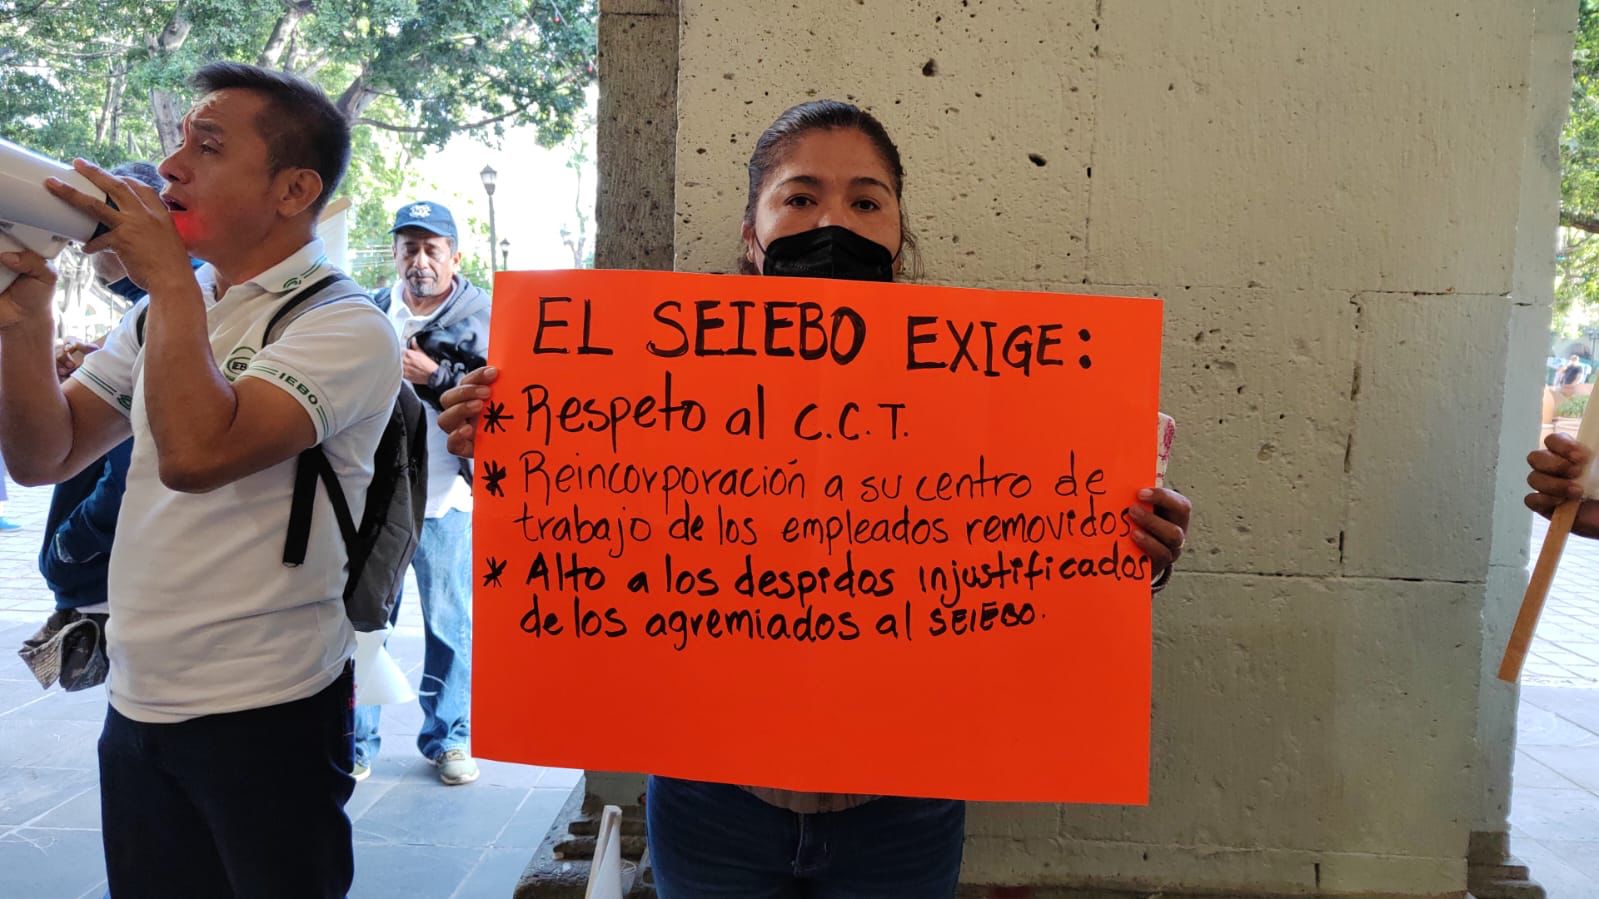 EL SEIEBO EXIGE:
* Respeto al C.C.T.
* Reincorporación a su centro de
trabajo de los empleados removidos
* Alto a los despidos injustificados
de los agremiados al SEIEBO.
IEBO